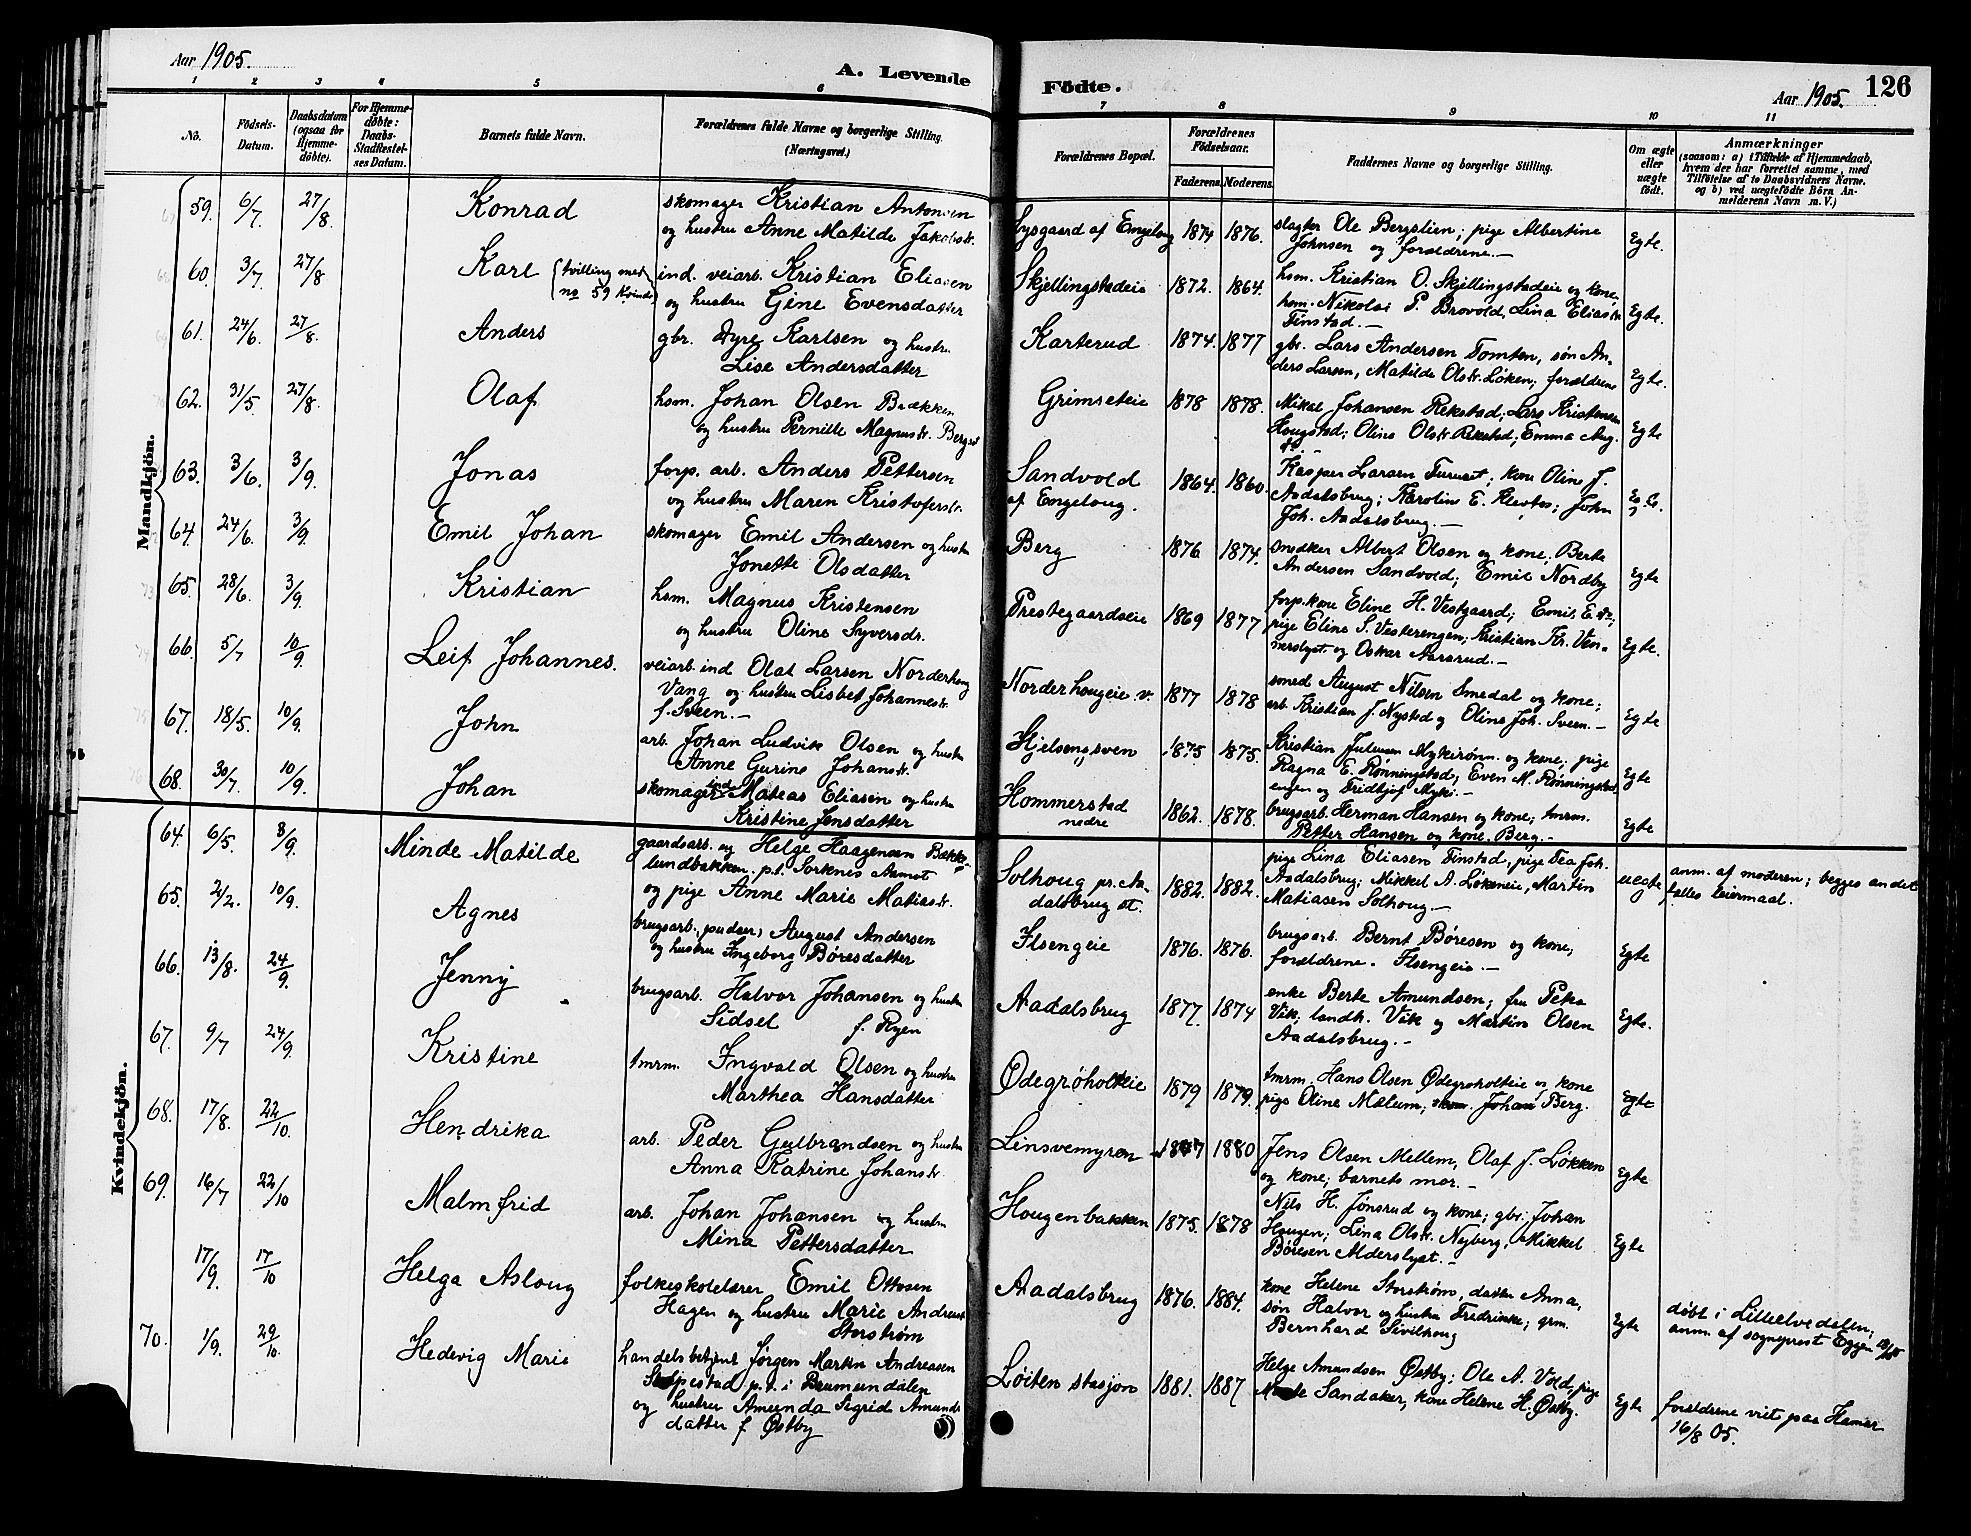 Aar 1905.
A. Levende
Fødte.
Aar 1905.
126
1 2 3 4 5 6
7 8 9 10 11
No.
Fødsels-Datum.
Daabsdatum (ogsaa for Hjemmedøbte).
For Hjemmedøbte: Daabs-Stadfæstelses Datum.
Barnets fulde Navn.
Forældrenes fulde Navne og borgerlige Stilling.
(Næringsvei.)
Forældrenes Bopæl.
Forældrenes Fødselsaar.
Faderens. Moderens.
Faddernes Navne og borgerlige Stilling.
Om ægte eller uægte født.
Anmærkninger
(saasom: a) i Tilfælde af Hjemmedaab,
hvem der har forrettet samme, med
Tilføielse af to Daabsvidners Navne,
og b) ved uægtefødte Børn Anmelderens Navn m. V.)
Mandkjön.
59. 6/7 27/8. Konrad
skomager Kristian Antonsen
og hustru Anne Matilde Jakobsdr.
Lysgaard af Engeloug 1874 1876.
slagter Ole Bergslien; pige Albertine
Johnsen og forældrene.—
Egte.
60. 3/7. 27/8 Karl (tvilling med
no 59 Kvinde)
ind. veiarb. Kristian Eliasen
og hustru Gine Evensdatter
Skjellingstadeie 1872. 1864.
hsm. Kristian O. Skjellingstadeie og kone,
hsm. Nikolai P. Brovold, Lina Eliasdr.
Finstad.—
Egte.
61. 24/6. 27/8. Anders
gbr. Dyre Karlsen og hustru
Lise Andersdatter
Karterud 1874. 1877
gbr. Lars Andersen Tomten, søn An-
ders Larsen, Matilde Olsdr. Løken; forældrene
Egte.
62. 31/5. 27/8. Olaf
hsm. Johan Olsen Brækken
og hustru Pernille Magnusdr. Berget
Grimseteie 1878 1878.
Mikal Johansen Rekstad; Lars Kristensen
Hougstad; Oline Olsdr. Rekstad; Emma Aug.
Egte
63. 3/6. 3/9. Jonas
forp. arb. Anders Pettersen
og hustru Maren Kristofersdr.
Sandvold
af Engeloug.
1864. 1860.
Kasper Larsen Tururet; kone Oline J.
Aadalsbrug; Karoline E. Klevtos; John
Joh. Aadalsbrug.—
64. 24/6. 3/9. Emil Johan
skomager Emil Andersen og hustru
Jonette Olsdatter
Berg 1876 1874.
snedker Albert Olsen og kone; Berte
Andersen Sandvold; Emil Nordby
Egte
65. 28/6. 3/9. Kristian
hsm. Magnus Kristensen
og hustru Oline Syversdr.
Prestegaardseie 1869 1877
forp. kone Eline H. Vestgaard; Emil E. do;
pige Eline S. Vesterengen; Kristian Kr. Ven-
nerslyst og Oskar Aarsrud.—
Egte.
66. 5/7 10/9. Leif Johannes.
veiarb. ind Olaf Larsen Norderhoug
Vang og hustru Lisbet Johannesdr.
f. Sveen.—
Norderhougeie v. 1877 1878
smed August Nilsen Smedal og kone;
arb. Kristian J. Nystad og Oline Joh. Sveen.—
Egte
67. 18/5. 10/9. John
arb. Johan Ludvik Olsen og hustru
Anne Gurine Johansdr.
Hjelsenssveen 1875 1875.
Kristian Julussen Mykirønn. og kone; pige
Ragna E. Rønningstad; Even M. Rønningstad
engen og Fridtjof Myki.—
Egte
68. 30/7. 10/9. Johan
skomager ind Mateas Eliasen og hustru
Kristine Jensdatter
Hommerstad
nedre
1862. 1878.
brugsarb. Herman Hansen og kone; tmrm.
Petter Hansen og kone, Berg.—
Egte
Kvindekjön.
64. 6/5. 3/9. Minde Matilde
gaardsarb. ug Helge Haagensen Bække-
lundbakken. p.t. Sorknes Aamot
og pige Anne Marie Matiasdr.
Solhoug pr. Aa-
dalsbrug st.
1882. 1882.
pige Lina Eliasen Finstad, pige Tea Joh.
Aadalsbrug; Mikkel A. Løkeneie, Martin
Matiasen Solhoug.—
uegte
anm. af moderen; begges andet
fælles leiermaal.
65. 2/2. 10/9. Agnes
brugsarb. (pudser) August Andersen
og hustru Ingeborg Børesdatter
Ilsengeie 1876. 1876.
brugsarb. Bernt Børesen og kone,
forældrene. Ilsengeie.—
Egte
66. 13/8. 24/9. Jenny
brugsarb. Halvor Johansen og hustru
Sidsel f. Ryen
Aadalsbrug 1877. 1874
enke Berte Amundsen; fru Peka
Vik; landh. Vik og Martin Olsen
Aadalsbrug.—
Egte.
67. 9/7 24/9. Kristine
tmrm. Ingvald Olsen og hustru
Marthea Hansdatter
Ødegrøholteie 1879 1879.
tmrm. Hans Olsen Ødegroholteie og kone
pige Oline Mælum; Johan Berg.
Egte
68. 17/8. 22/10. Hendrika
arb. Peder Gulbrandsen og hustru
Anna Katrine Johansdr.
Linsvemyren 1877 1880
Jens Olsen Mellem, Olaf J. Løkken
og kone; barnets mor.—
Egte
69. 16/7 22/10 Malmfrid
arb. Johan Johansen og hustru
Mina Pettersdatter
Hougenbakken 1875. 1878
Nils H. Jønsrud og kone; gbr. Johan
Hougen; Lina Olsdr. Nyberg, Mikkel
Børesen Alderslyst.—
Egte
17/9. 17/10 Helga Aslaug
folkeskolelærer Emil Ottosen
Hagen og hustru Marie Andreasdr
Storstrøm
Aadalsbrug 1876. 1884.
kone Helene Storstrøm, datter Anna,
søn Halvor og hustru Fredrinke; grm.
Bernhard Sivilhoug
Egte
døbt i Lilleelvedalen;
anm. af sogneprest Eggen
70. 1/9. 29/10. Hedevig Marie
handelsbetjent Jørgen Martin Andreasen
Stolpestad p.t. i Brumundalen
og hustru Amunda Sigrid Amunds
datter f Østby
Løiten stasjon 1881. 1887
Helge Amundsen Østby; Ole A. Vold, pige
Sandaker, kone Helene H. Østby.
Egte
forældrene viet paa Hamar
16/8 05.